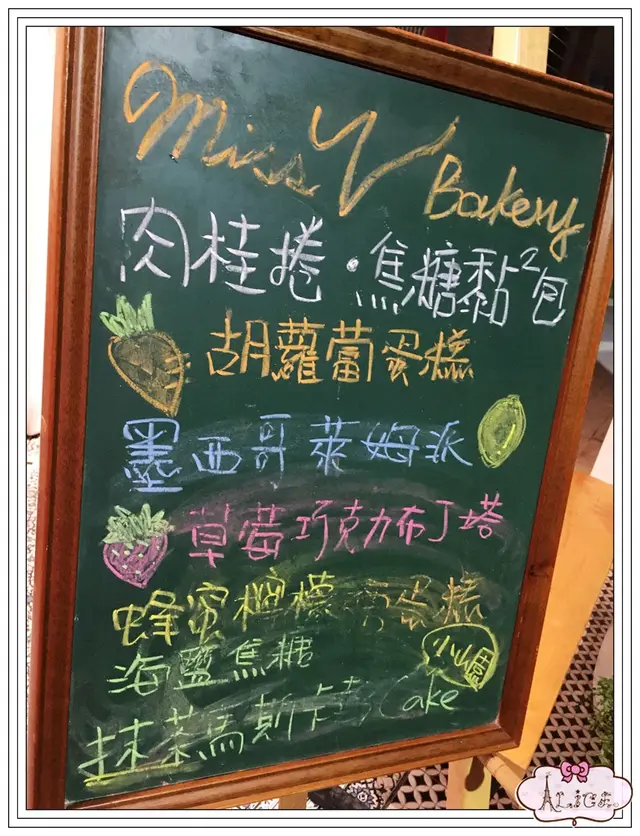 Miss V Bakery
肉桂捲·焦糖黏²包
胡蘿蔔蛋糕
墨西哥萊姆派
草莓巧克力布丁塔
蜂蜜檸檬 蛋糕
海鹽焦糖
抹茶馬斯卡 Cake
ALICE